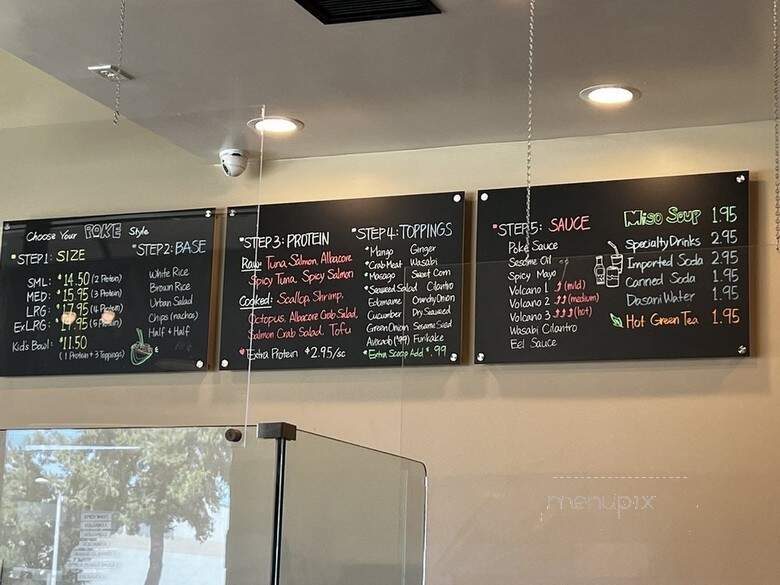 Choose Your POKE Style
*STEP 1: SIZE
SML: *14.50 (2 Protein)
MED: *15.95 (3 Protein)
LRG: (4 Protein)
ExLRG: (5 Protein)
Kids Bowl: *11.50
(1 Protein + 3 Toppings)
*STEP 2: BASE
White Rice
Brown Rice
Urban Salad
Chips (nachos)
Half + Half
*STEP 3: PROTEIN
Raw: Tuna, Salmon, Albacore
Spicy Tuna, Spicy Salmon
Cooked: Scallop, Shrimp,
Octopus, Albacore Crab Salad,
Salmon Crab Salad, Tofu
Extra Protein *2.95/sc
*STEP 4: TOPPINGS
*Mango Ginger
*Crab Meat Wasabi
*Masago Sweet Corn
*Seaweed Salad Cilantro
Edamame Crunchy Onion
Cucumber Dry Seaweed
Green Onion Sesame Seed
Avocado (*.99) Furikake
*Extra Scoop Add *.99
*STEP 5: SAUCE
Poke Sauce
Sesame Oil
Spicy Mayo
Volcano 1 (mild)
Volcano 2 (medium)
Volcano 3 (hot)
Wasabi Cilantro
Eel Sauce
Miso Soup 1.95
Specialty Drinks 2.95
Imported Soda 2.95
Canned Soda 1.95
Dasani Water 1.95
Hot Green Tea 1.95
menupix